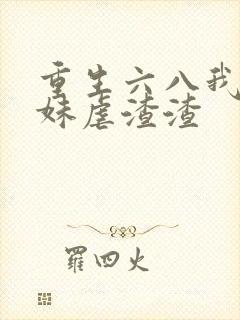 重生六八我
妹虐渣渣
罗四火